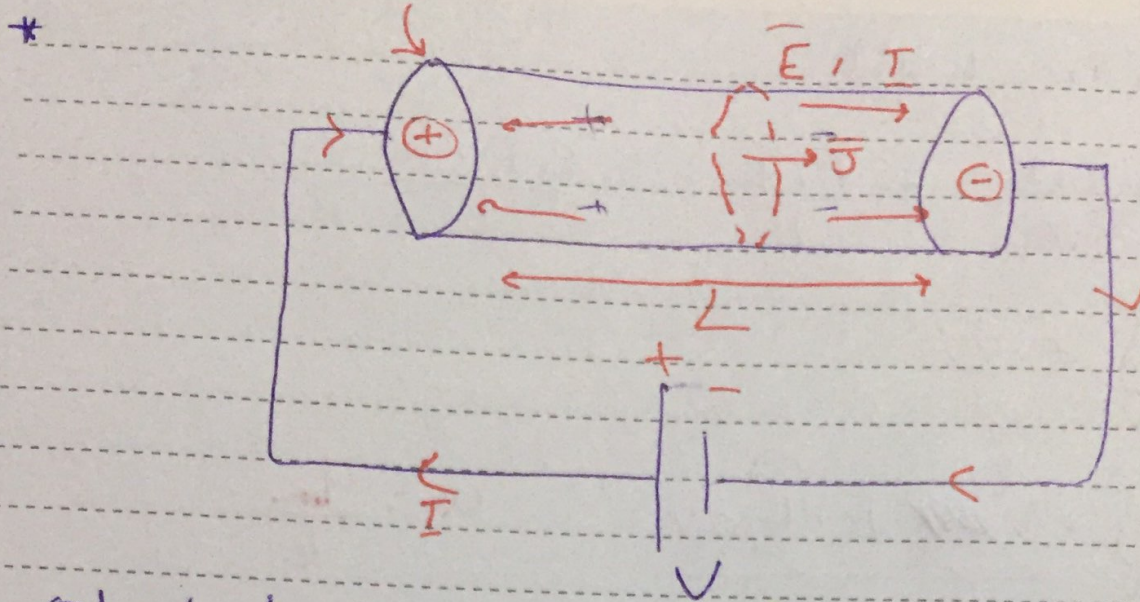 *
E , I
⊕ + - J
+ - ⊖
L
+ -
I
V